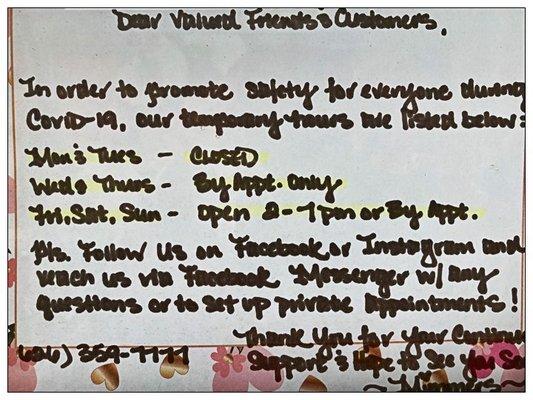 Dear Valued Friends & Customers,
In order to promote safety for everyone during
Covid-19, our temporary hours are listed below:
Mon & Tues - CLOSED
Wed & Thurs - By Appt. Only
Fri, Sat, Sun - Open 2-7pm or By Appt.
Pls. Follow Us on Facebook or Instagram and
reach us via Facebook Messenger w/ any
questions or to set up private appointments!
Thank You for Your Continue
(626) 359-7777
Support & Hope to See You So
~Mimmers~